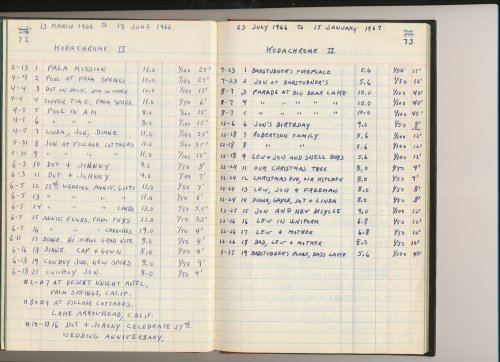 13 MARCH 1966 to 18 JUNE 1966.
72
KODACHROME II
3-13 1 PALA MISSION 12.0 1/100 25'
4-4 2 POOL AT PALM SPRINGS 10.0 1/100 25'
4-4 3 DOT ON DECK, JON IN WATER 10.0 1/100 15'
4-4 4 SUPPER TIME, PALM SPRGS. 11.0 1/50 6'
4-5 5 POOL IN AM 8.0 1/100 15'
4-5 6 " " " 8.0 1/100 15'
4-5 7 LINDA, JON, DIANE 11.0 1/100 25'
5-31 8 JON AT VILLAGE COTTAGES 11.0 1/100 35'
5-31 9 " " " " 11.0 1/100 15'
6-3 10 DOT & JOHNNY 9.0 1/50 8'
6-3 11 DOT & JOHNNY 9.0 1/50 7'
6-5 12 25th WEDDING ANNIV, GIFTS 11.0 1/50 7'
6-5 13 " " " " 11.0 1/50 5'
6-5 14 " " " CARDS 13.0 1/50 3.5'
6-5 15 ANNIV. FLWRS, FAM PHYS 12.0 1/50 3.5'
6-5 16 " " CAREGIVERS 19.0 1/50 4'
6-15 17 DIANE, HI SCHOOL GRAD NITE 8.0 1/50 4'
6-16 18 DIANE, CAP & GOWN 8.0 1/50 4'
6-18 19 COWBOY JON, NEW SPURS 8.0 1/50 4'
6-18 21 COWBOY JON. 8.0 1/50 4'
#2-#7 AT DESERT KNIGHT MOTEL,
PALM SPRINGS, CALIF.
#8&#9 AT VILLAGE COTTAGES.
LAKE ARROWHEAD, CALIF.
#10-#16 DOT & JOHNNY CELEBRATE 25th
WEDDING ANNIVERSARY.
23 JULY 1966 to 15 JANUARY 1967
73
KODACHROME II
7-23 1 BADSTUBNER'S FIREPLACE 5.6 1/50 15'
7-23 2 JON AT BADSTUBNER'S 5.6 1/50 12'
8-7 3 PARADE AT BIG BEAR LAKE 10.0 1/100 40'
8-7 4 " " " " " 10.0 1/100 40'
8-7 5 " " " " " 10.0 1/100 45'
12-6 6 JON'S BIRTHDAY 9.0 1/50 8'
12-18 7 ROBERTSON FAMILY 5.6 1/100 12'
12-18 8 " " 5.6 1/50 12'
12-18 9 LEW & JON AND SNELL BOYS 5.6 1/50 12'
12-24 11 OUR CHRISTMAS TREE 8.0 1/50 8'
12-24 12 CHRISTMAS EVE, THE KITCHEN 8.0 1/50 9'
12-24 13 LEW, JON & FREEMAN 8.0 1/50 8'
12-24 14 DIANE, GAYLE, DOT & LINDA 8.0 1/50 8'
12-25 15 JON AND NEW BICYCLE 9.0 1/50 12'
12-26 16 LEW IN UNIFORM 6.8 1/50 12'
12-26 17 LEW & MOTHER 6.8 1/50 12'
12-26 18 DAD, LEW & MOTHER 8.0 1/50 10'
1-15 19 BADSTUBNER'S PLACE, BASS LAKE 5.6 1/100 40'